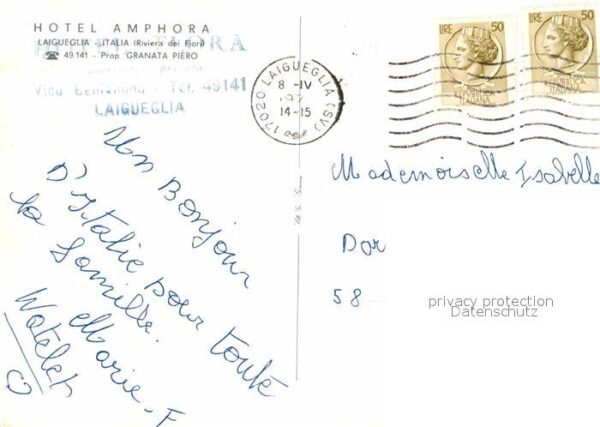 HOTEL AMPHORA
LAIGUEGLIA - ITALIA (Riviera dei Fiori)
☎ 49141 - Prop. GRANATA PIERO
Tel. 49141
LAIGUEGLIA
17020 LAIGUEGLIA (SV)
8 -IV
14-15
LIRE 50
REPUBBLICA
ITALIANA
LIRE 50
REPUBBLICA
ITALIANA
Un Bonjour
D'Italie pour toute
la famille.
Marie-F
Watelet
Mademoiselle Isabelle
Dor
58
privacy protection
Datenschutz